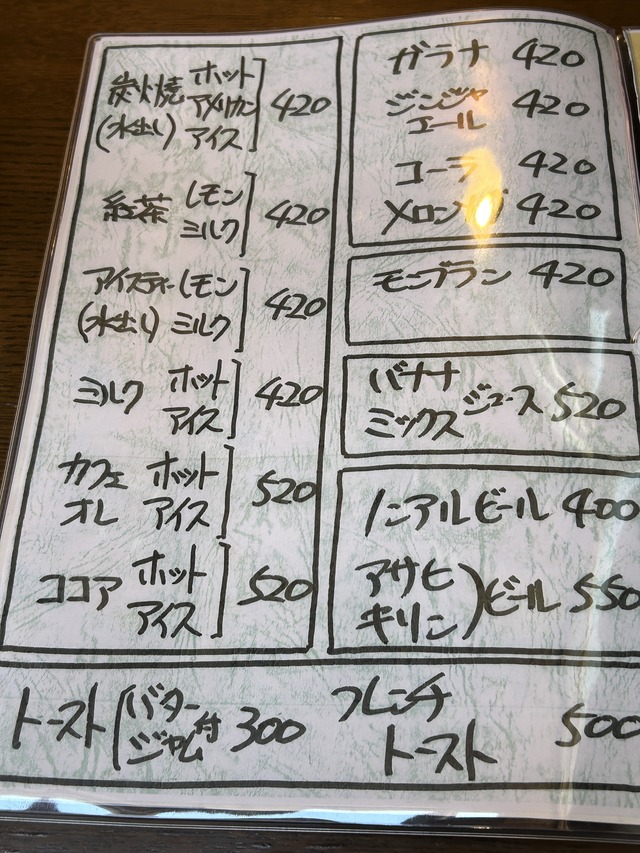 炭火焼 ホット
(水出し) アメリカン 420
アイス
紅茶 レモン
ミルク 420
アイスティー レモン
(水出し) ミルク 420
ミルク ホット
アイス 420
カフェ ホット
オレ アイス 520
ココア ホット
アイス 520
ガラナ 420
ジンジャ
エール 420
コーラ 420
メロン 420
モンブラン 420
バナナ
ミックス ジュース 520
ノンアルビール 400
アサヒ
キリン)ビール 550
トースト(バター
ジャム付 300
フレンチ
トースト 500